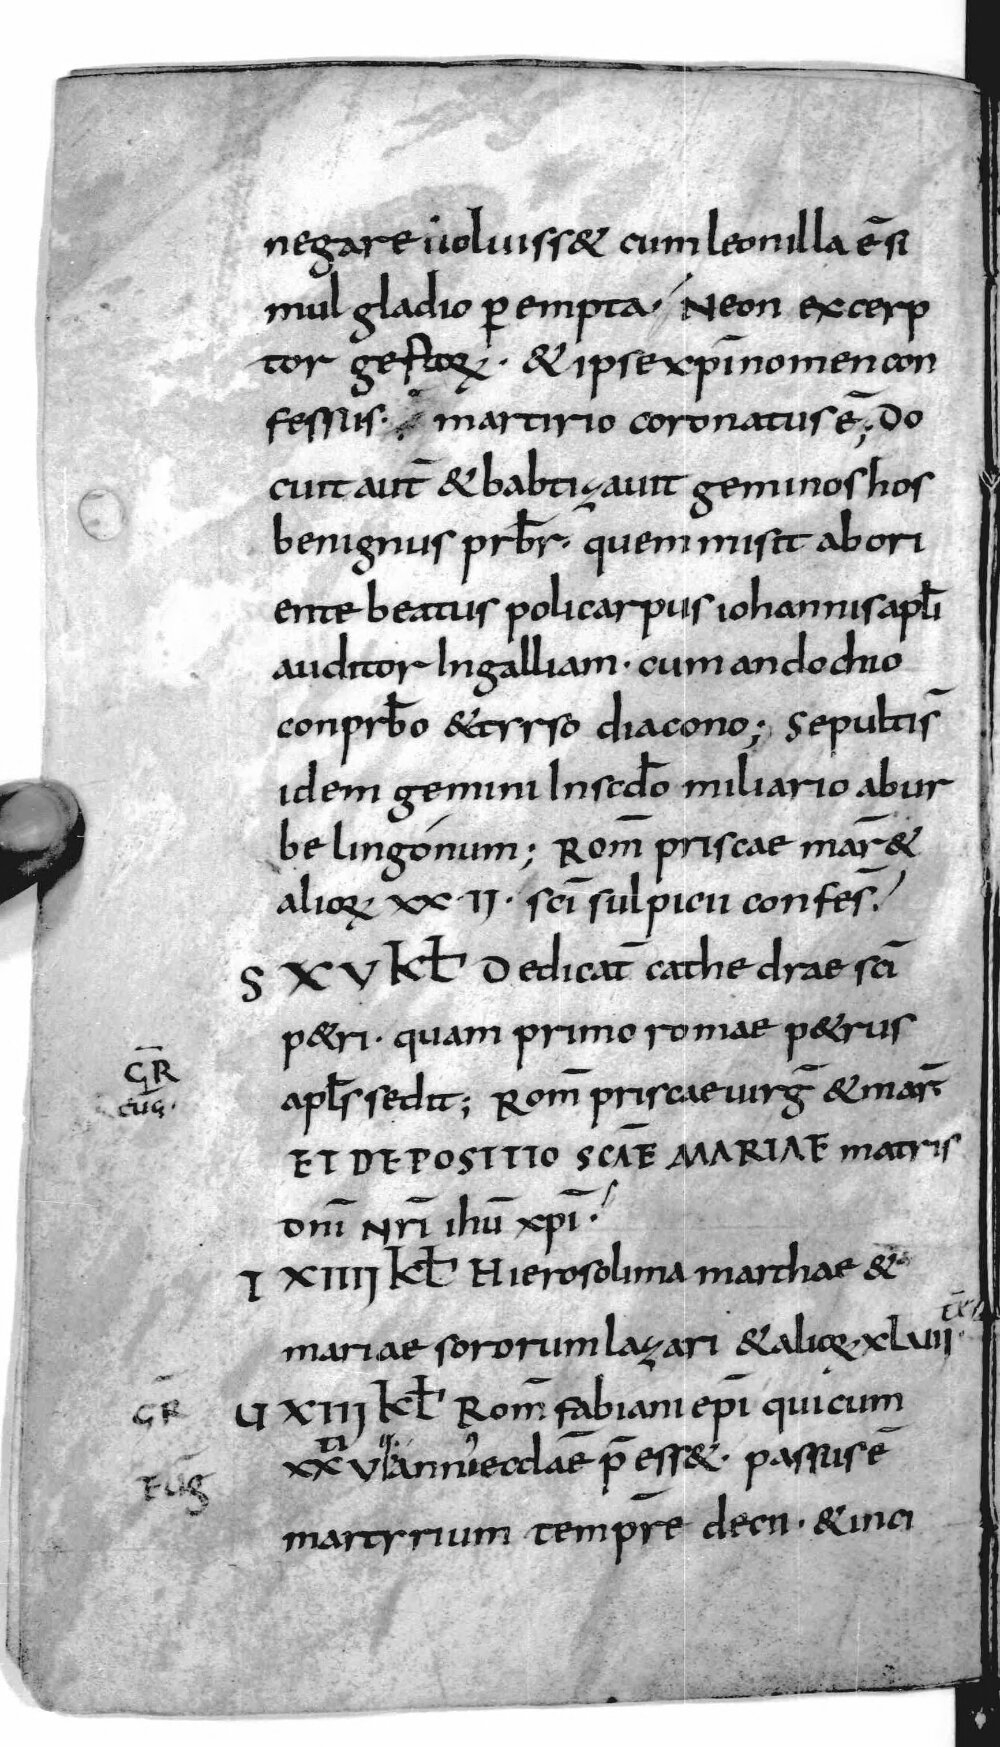 negare uoluiss& cum leonilla ē si
mul gladio pempta· Neon excerp
tor gestoꝝ· & ipse xp̄i nomen con
fessus· martirio coronatus ē; Do
cuit aut̄ & babtizauit geminos hos
benignus prb̄r· quem misit ab ori
ente beatus policarpus iohannis apl̄i
auditor In galliam· cum andochio
conprb̄o & tyrso diacono; Sepulti s̄
idem gemini In scd̄o miliario ab ur
be lingonum; Rom̄ priscae mar̄ &
alioꝝ xx·II· sc̄i sulpicii confes̄·
S XV kł Dedicat̄ cathedrae sc̄i
p&ri· quam primo romae p&rus
apl̄s sedit; Rom̄ priscae uirḡ & mar̄
ET DEPOSITIO SCAE̅ MARIAE matris
dn̄i Nr̄i ihū xp̄i·
GR̄
eug·
T XIIII kł Hierosolima marthae &
mariae sororum lazari & alioꝝ xLuiii
U XIII kł Rom̄ fabiani ep̄i qui cum
GR̄
xx V annis ecclae̅ p̄ess&· passus ē
Eūg
martyrium temp̄re decii· & in ci